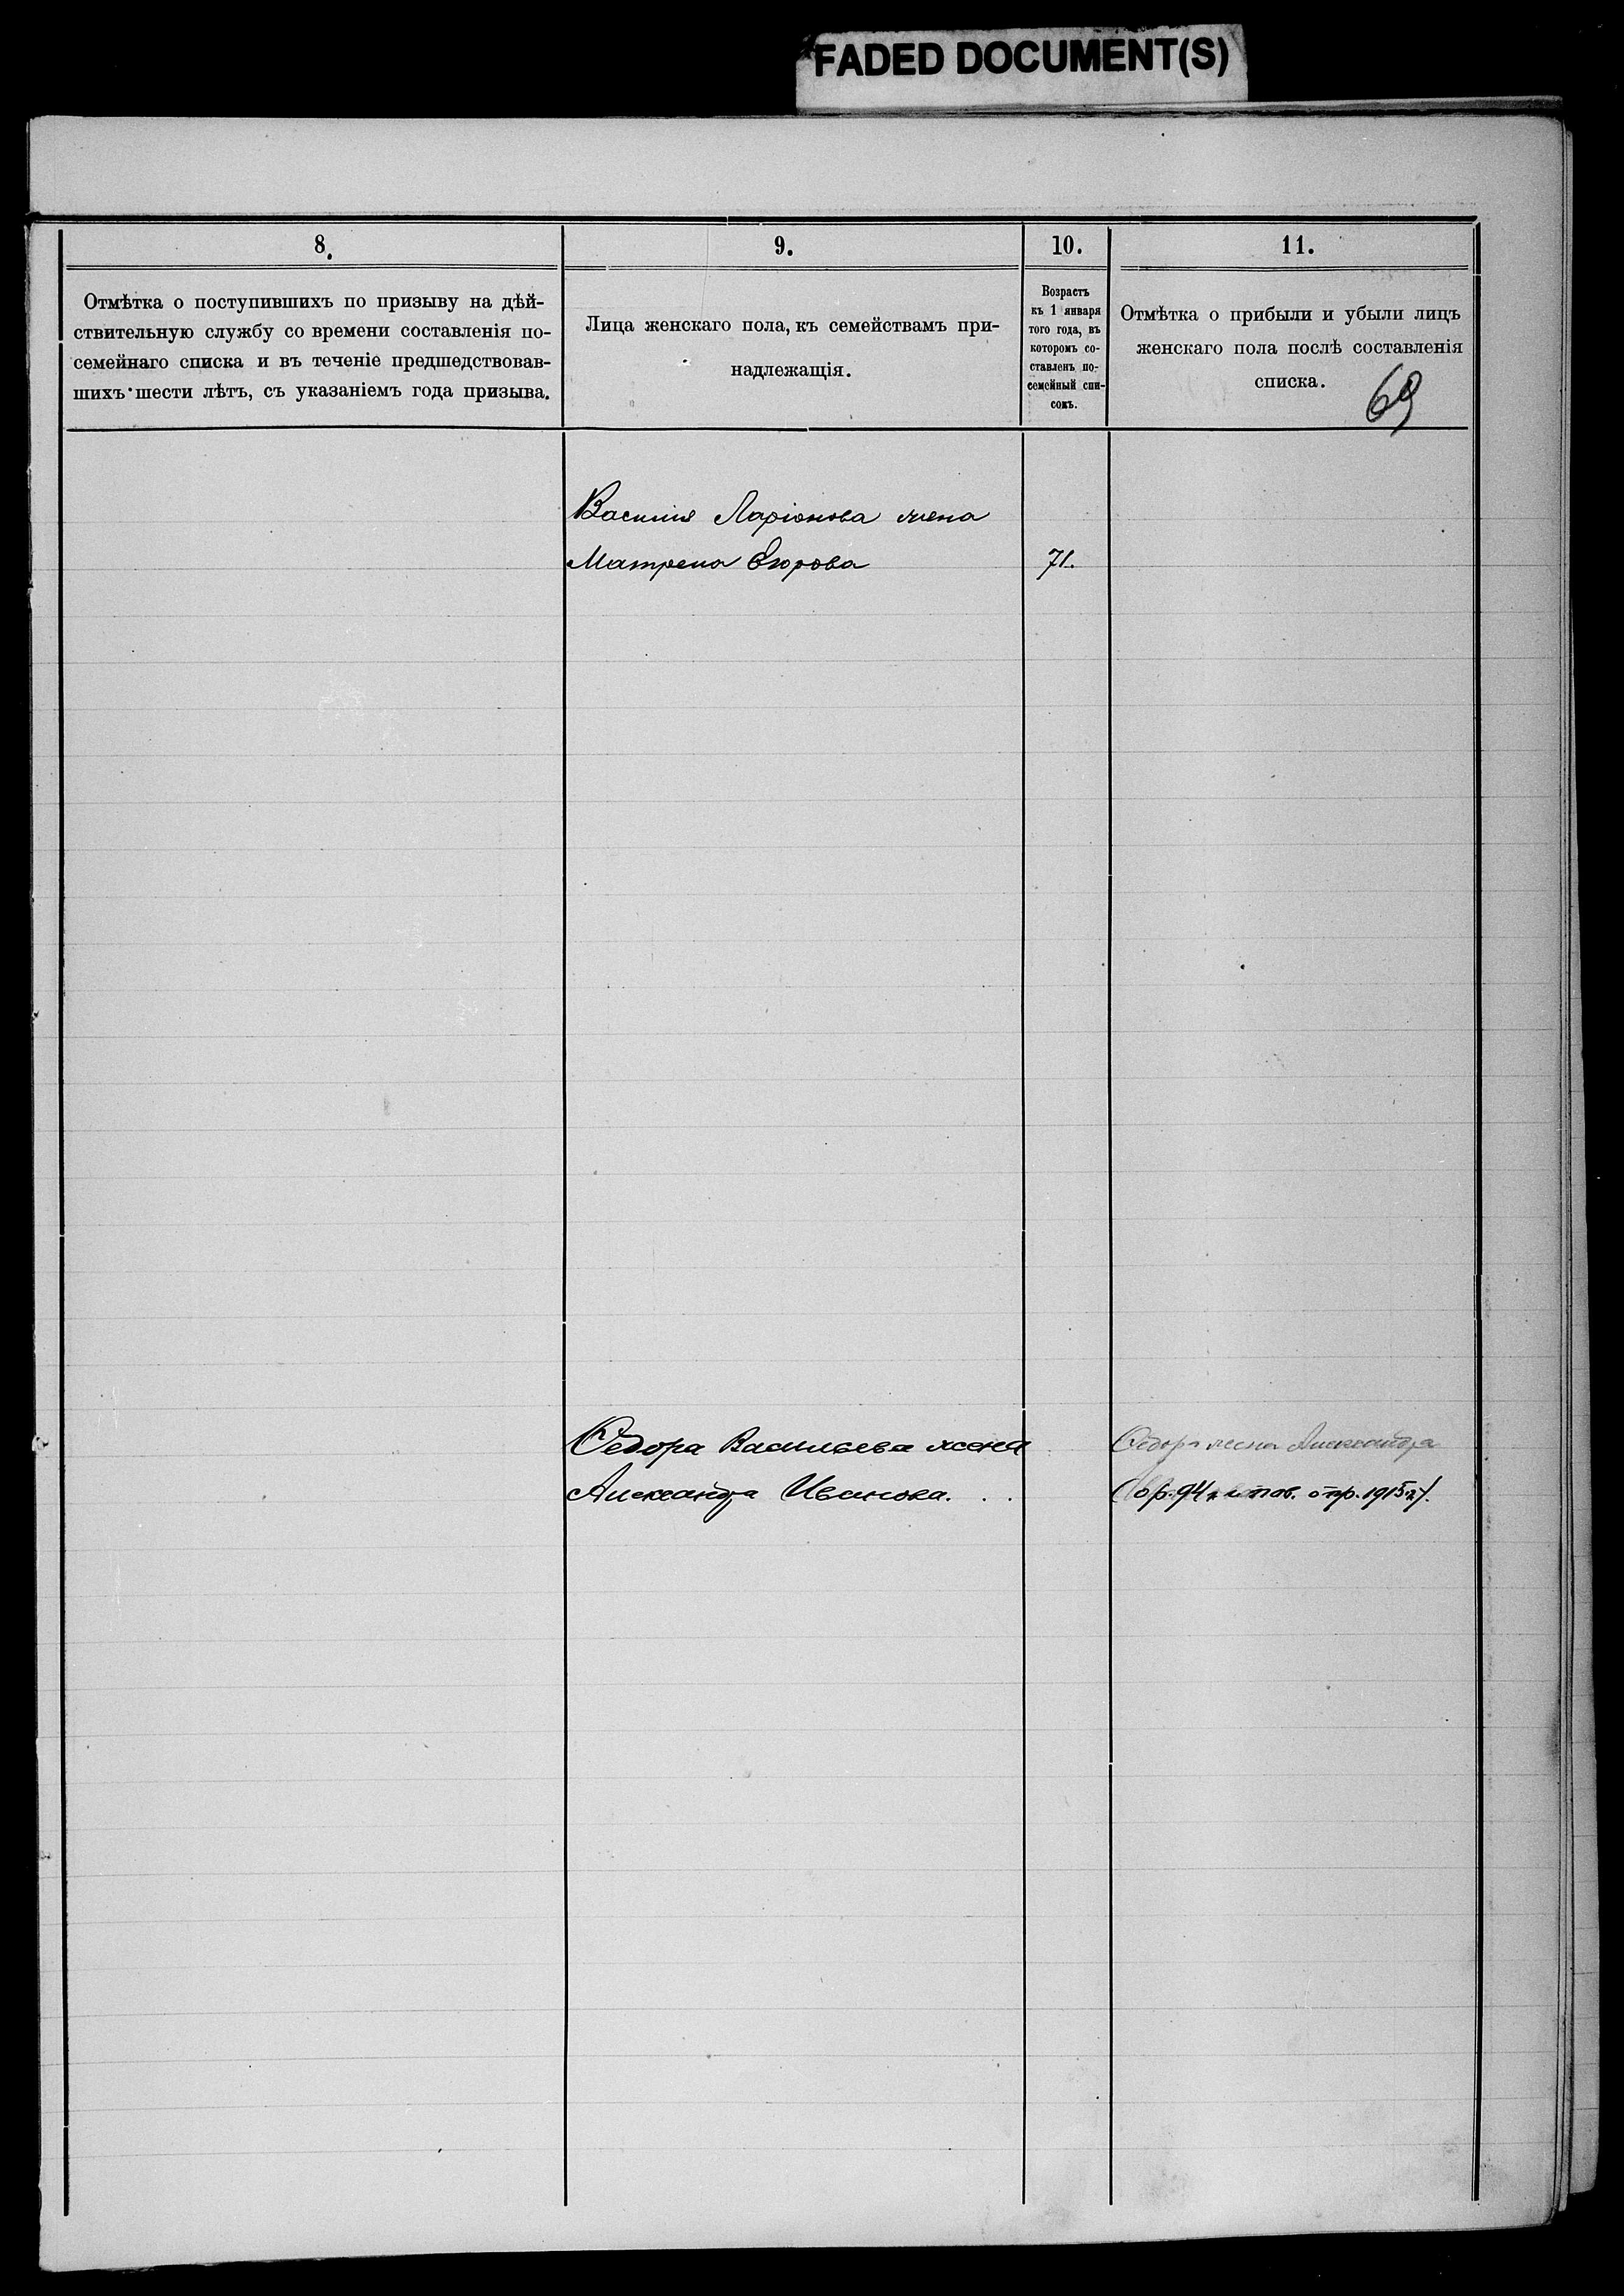 FADED DOCUMENT(S)
8.
Отмѣтка о поступившихъ по призыву на дѣй-
ствительную службу со времени составленія по-
семейнаго списка и въ теченіе предшедствовав-
шихъ шести лѣтъ, съ указаніемъ года призыва.
9.
Лица женскаго пола, къ семействамъ при-
надлежащія.
10.
Возрастъ
къ 1 января
того года, въ
которомъ со-
ставленъ по-
семейный спи-
сокъ.
11.
Отмѣтка о прибыли и убыли лицъ
женскаго пола послѣ составленія
списка.
69
Василія Ларіонова жена
Матрена Егорова 71.
Ѳедора Васильева жена
Александра Иванова. . .
Ѳедора жена Александра
1915